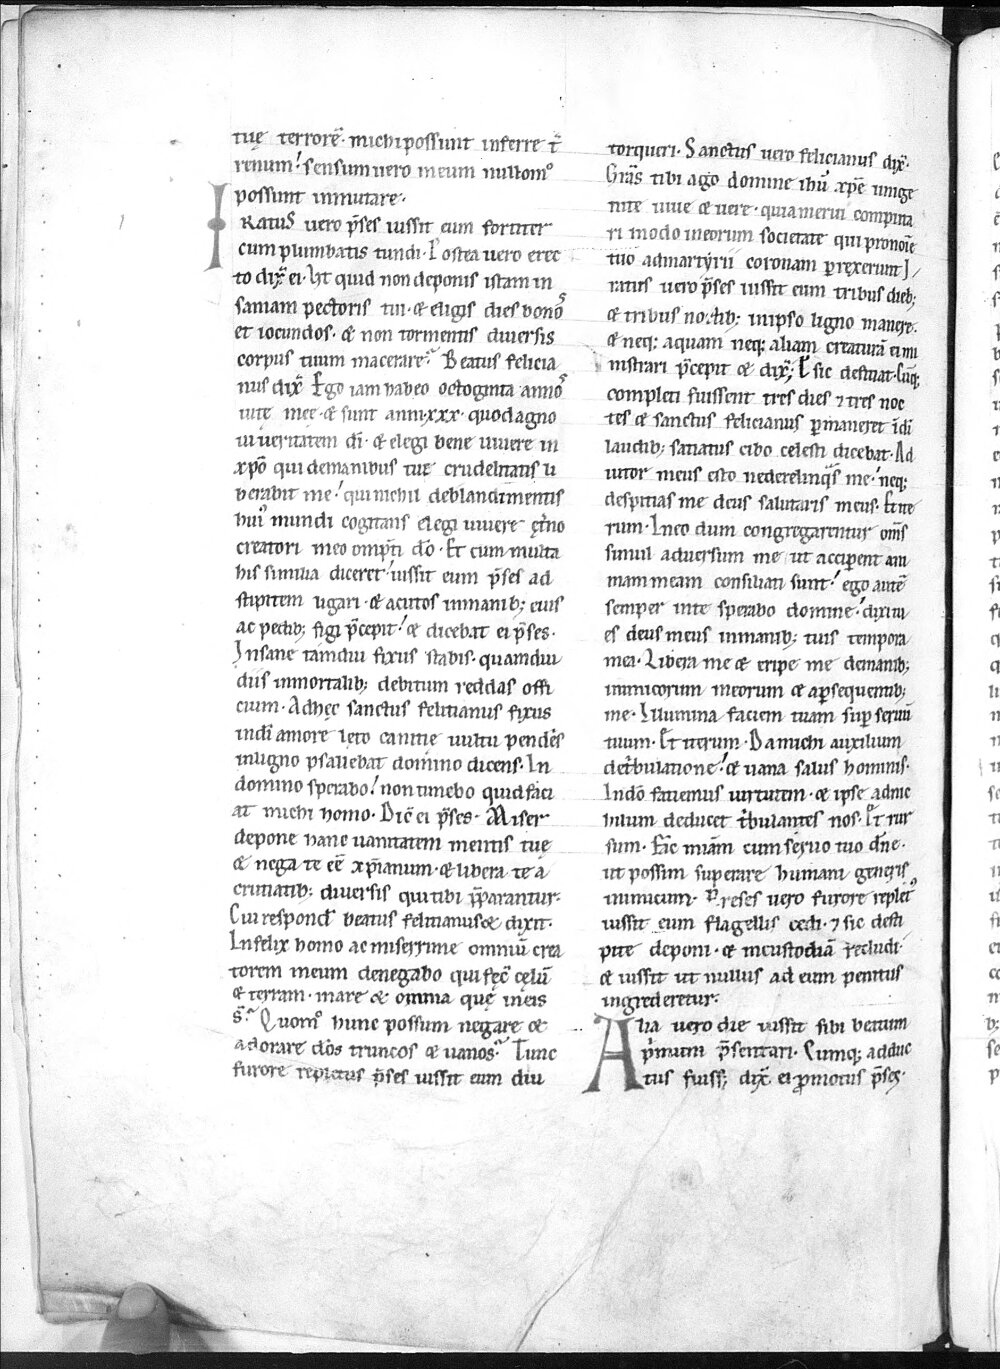 tuę terrorē· michi possunt inferre t̄
renum! sensum uero meum nullom°
possunt inmutare·
IRATUS uero p̄ses iussit eum fortiter
cum plumbatis tundi· Postea uero erec
to dix̄ ei· Ut quid non deponis istam in
saniam pectoris tui· & eligis dies bonoˢ
et iocundos· & non tormentis diuersis
corpus tuum macerare? Beatus felicia
nus dix̄· Ego iam habeo octoginta annoˢ
uite meę· & sunt anni·xxx· quod agno
ui ueritatem dī· & elegi bene uiuere in
xp̄o qui demanibus tuę crudelitatis li
berabit me! qui nichil deblandimentis
hui᾽ mundi cogitans elegi uiuere et̄no
creatori meo omp̄ti dō· Et cum multa
his similia diceret! iussit eum p̄ses ad
stipitem ligari· & acutos inmanib; eius
ac pedib; figi p̄cepit! & dicebat ei p̄ses·
Insane tamdiu fixus stabis· quamdiu
diis inmortalib; debitum reddas offi
cium· Adhęc sanctus felitianus fixus
indī amore lęto canitie uultu pendēs
inligno psallebat domino dicens· In
domino sperabo! non timebo quid faci
at michi homo· Dic̄ ei p̄ses· Miser
depone hanc uanitatem mentis tuę
& nega te eē xp̄ianum· & libera te a
cruciatib; diuersis qui tibi p̄parantur·
Cui respond̄ beatus felitianus & dixit·
Infelix homo ac miserrime omniū crea
torem meum denegabo qui fec̄ cęlū
& terram· mare & omnia quę ineis
s̄? Quom° hunc possum negare &
adorare dōs truncos & uanos? Tunc
furore repletus p̄ses iussit eum diu
torqueri· Sanctus uero felicianus dix̄·
Gr̄as tibi ago domine ihū xp̄e unige
nite uiue & uere· quia merui computa
ri modo meorum societate qui pronoīe
tuo admartyrii coronam p̱rexerunt I/
ratus uero p̄ses iussit eum tribus dieb;
& tribus noctib; inipso ligno manere·
& neq; aquam neq; aliam creaturā ei mi
nistrari p̄cepit & dix̄; Et sic deficiat· Cūq;
completi fuissent tres dies ⁊ tres noc
tes & sanctus felicianus p̱maneret īdī
laudib; satiatus cibo celesti dicebat· Ad
iutor meus esto nederelinq̄s me! neq;
despitias me deus salutaris meus· Et ite
rum· Ineo dum congregarentur om̄s
simul aduersum me ut accip̱ent ani
mam meam consiliati sunt! ego autē
semper inte sperabo domine! dixi tu
es deus meus inmanib; tuis tempora
mea· Libera me & eripe me demanib;
inimicorum meorum & ap̱sequentib;
me· Illumina faciem tuam sup̱ seruū
tuum· Et iterum· Da michi auxilium
det̄bulatione! & uana salus hominis·
Indō faciemus uirtutem· & ipse adnic
hilum deducet t̄bulantes nos· Et rur
sum· Fac miām cum seruo tuo dn̄e·
ut possim superare humani generis
inimicum· P̄reses uero furore replet᾽
iussit eum flagellis cedi· ⁊ sic desti
pite deponi· & incustodiā recludi·
& iussit ut nullus ad eum penitus
ingrederetur·
Alia uero die iussit sibi beatum
p̄imum p̄sentari· Cumq; adduc
tus fuiss; dix̄ ei p̄motus p̄ses·